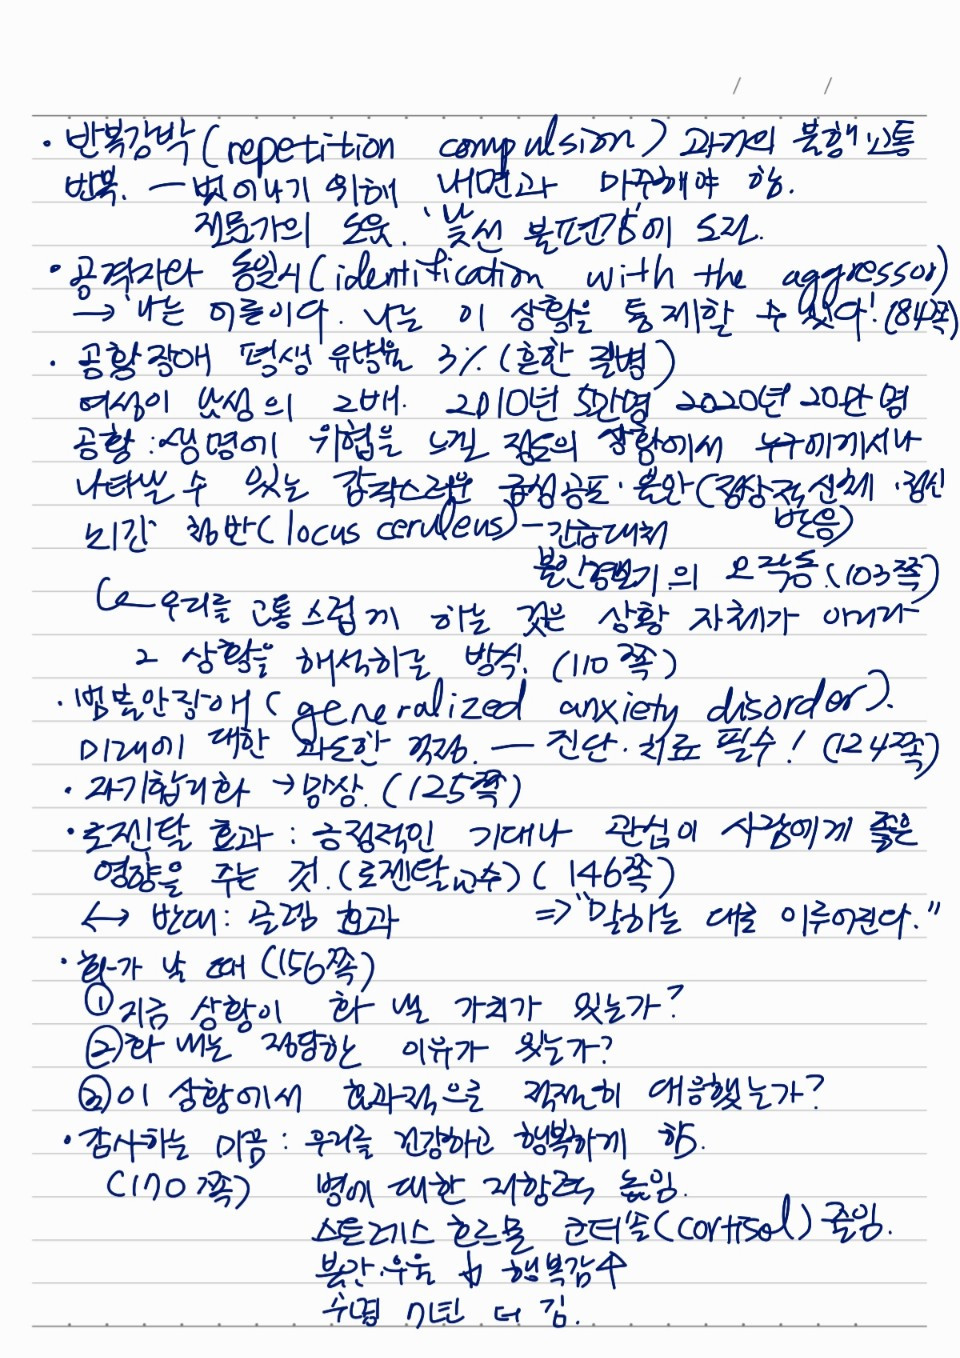 · 반복강박(repetition compulsion) 과거의 불행·고통
반복. ─ 벗어나기 위해 내면과 마주해야 함.
전문가의 도움. '낯선 불편감'에 도전.
· 공격자와 동일시(identification with the aggressor)
→ '나는 어른이다. 나는 이 상황을 통제할 수 있다!'(84쪽)
· 공황장애 평생 유병율 3%(흔한 질병)
여성이 남성의 2배. 2010년 5만명 2020년 20만 명
공황 : 생명에 위협을 느낄 정도의 상황에서 누구에게서나
나타날 수 있는 갑작스러운 급성공포·불안(정상적 신체·정신
반응)
뇌간 청반(locus ceruleus)─긴급대처
불안경보기의 오작동.(103쪽)
우리를 고통스럽게 하는 것은 상황 자체가 아니라
그 상황을 해석하는 방식. (110쪽)
· 범불안장애(generalized anxiety disorder).
미래에 대한 과도한 걱정. ─ 진단·치료 필수! (124쪽)
· 자기합리화 → 망상. (125쪽)
· 로젠탈 효과 : 긍정적인 기대나 관심이 사람에게 좋은
영향을 주는 것.(로젠탈교수)(146쪽)
↔ 반대 : 골렘 효과 ⇒ "말하는 대로 이루어진다."
· 화가 날 때 (156쪽)
① 지금 상황이 화 낼 가치가 있는가?
② 화 내는 정당한 이유가 있는가?
③ 이 상황에서 효과적으로 적절히 대응했는가?
· 감사하는 마음 : 우리를 건강하고 행복하게 함.
(170쪽) 병에 대한 저항력 높임.
스트레스 호르몬 코티솔(cortisol) 줄임.
불안·우울 ↓ 행복감↑
수명 7년 더 김.